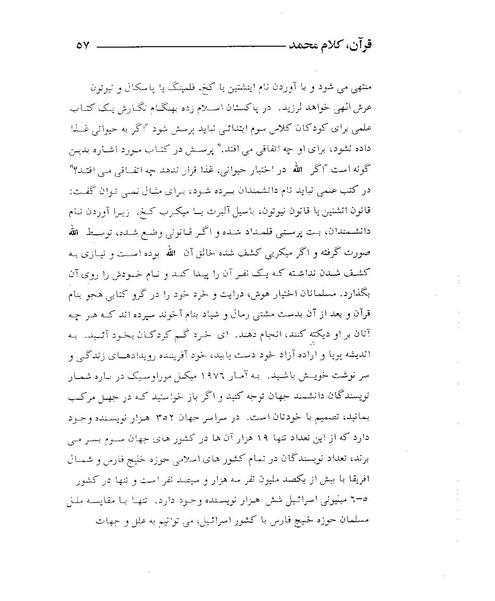 قرآن، کلام محمد ۵۷
منتهی می شود و با آوردن نام اینشتین یا کخ. فلمینگ یا پاسکال و نیوتون
عرش الهی خواهد لرزید. در پاکستان اسلام زده بهنگام نگارش یک کتاب
علمی برای کودکان کلاس سوم ابتدائی نباید پرسش شود "اگر به حیوانی غذا
داده نشود، برای او چه اتفاقی می افتد." پرسش در کتاب مورد اشاره بدین
گونه است "اگر الله در اختیار حیوانی، غذا قرار ندهد چه اتفاقی می افتد؟"
در کتب علمی نباید نام دانشمندان برده شود، برای مثال نمی توان گفت:
قانون انشتین یا قانون نیوتون، باسیل آلبرت یا میکرب کخ. زیرا آوردن نام
دانشمندان، بت پرستی قلمداد شده و اگر قانونی وضع شده، توسط الله
صورت گرفته و اگر میکربی کشف شده خالق آن الله بوده است و نیازی به
کشف شدن نداشته که یک نفر آن را پیدا کند و نام خودش را روی آن
بگذارد. مسلمانان اختیار هوش، درایت و خرد خود را در گرو کتابی هجو بنام
قرآن و بعد از آن بدست مشتی رمال و شیاد بنام آخوند سپرده اند که هر چه
آنان بر او دیکته کنند، انجام دهند. ای خرد گم کردکان بخود آئید. به
اندیشه پویا و اراده آزاد خود دست یابید، خود آفریننده رویدادهای زندگی و
سر نوشت خویش باشید. به آمار ۱۹۷۶ میکل موراوسیک در باره شمار
نویسندگان دانشمند جهان توجه کنید و اگر باز خواستید که در جهل مرکب
بمانید، تصمیم با خودتان است. در سراسر جهان ۳۵۲ هزار نویسنده وجود
دارد که از این تعداد تنها ۱۹ هزار آن ها در کشور های جهان سوم بسر می
برند، تعداد نویسندگان در تمام کشور های اسلامی حوزه خلیج فارس و شمال
افریقا با بیش از یکصد ملیون نفر سه هزار و سیصد نفر است و تنها در کشور
۵-۶ میلیونی اسرائیل شش هزار نویسنده وجود دارد. تنها با مقایسه ملل
مسلمان حوزه خلیج فارس با کشور اسرائیل، می توانیم به علل و جهات